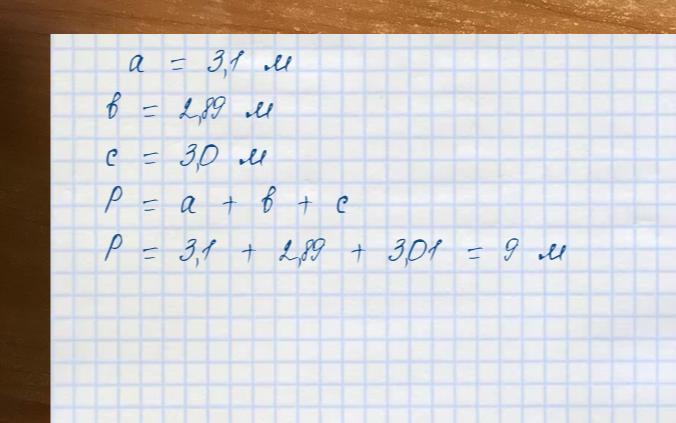 a = 3,1 м
в = 2,89 м
с = 3,0 м
P = a + в + с
P = 3,1 + 2,89 + 3,01 = 9 м